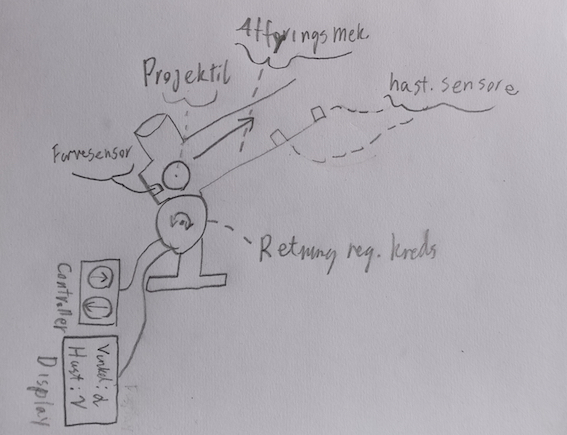 Affyrings mek
Projektil
hast. sensore
Farvesensor
Retning reg. kreds
Controller
Vinkel: α
Hast: v
Display